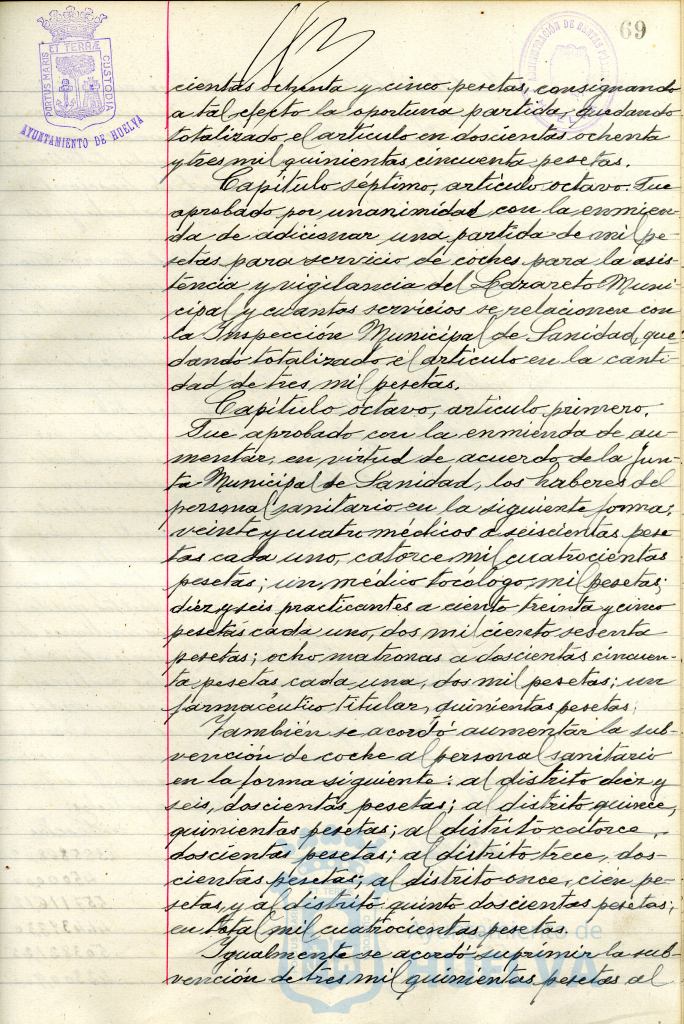 69
PORTUS MARIS ET TERRÆ CUSTODIA
AYUNTAMIENTO DE HUELVA
cientas ochenta y cinco pesetas, consignando
a tal efecto la oportuna partida, quedando
totalizado el artículo en doscientas ochenta
y tres mil quinientas cincuenta pesetas.
Capítulo séptimo, artículo octavo. Fue
aprobado por unanimidad con la enmien-
da de adicionar una partida de mil pe-
setas para servicio de coches para la asis-
tencia y vigilancia del Lazareto Muni-
cipal y cuantos servicios se relacionen con
la Inspección Municipal de Sanidad, que-
dando totalizado el artículo en la canti-
dad de tres mil pesetas.
Capítulo octavo, artículo primero.
Fue aprobado con la enmienda de au-
mentar, en virtud de acuerdo de la Jun-
ta Municipal de Sanidad, los haberes del
personal sanitario en la siguiente forma:
veinte y cuatro médicos a seiscientas pese-
tas cada uno, catorce mil cuatrocientas
pesetas; un médico tocólogo, mil pesetas;
diez y seis practicantes a ciento treinta y cinco
pesetas cada uno, dos mil ciento sesenta
pesetas; ocho matronas a doscientas cincuen-
ta pesetas cada una, dos mil pesetas; un
farmacéutico titular, quinientas pesetas.
También se acordó aumentar la sub-
vención de coche al personal sanitario
en la forma siguiente: al distrito diez y
seis, doscientas pesetas; al distrito quince,
quinientas pesetas; al distrito catorce,
doscientas pesetas; al distrito trece, dos-
cientas pesetas; al distrito once, cien pe-
setas, y al distrito quinto doscientas pesetas;
en total mil cuatrocientas pesetas.
Igualmente se acordó suprimir la sub-
vención de tres mil quinientas pesetas al
Ayuntamiento de
HUELVA